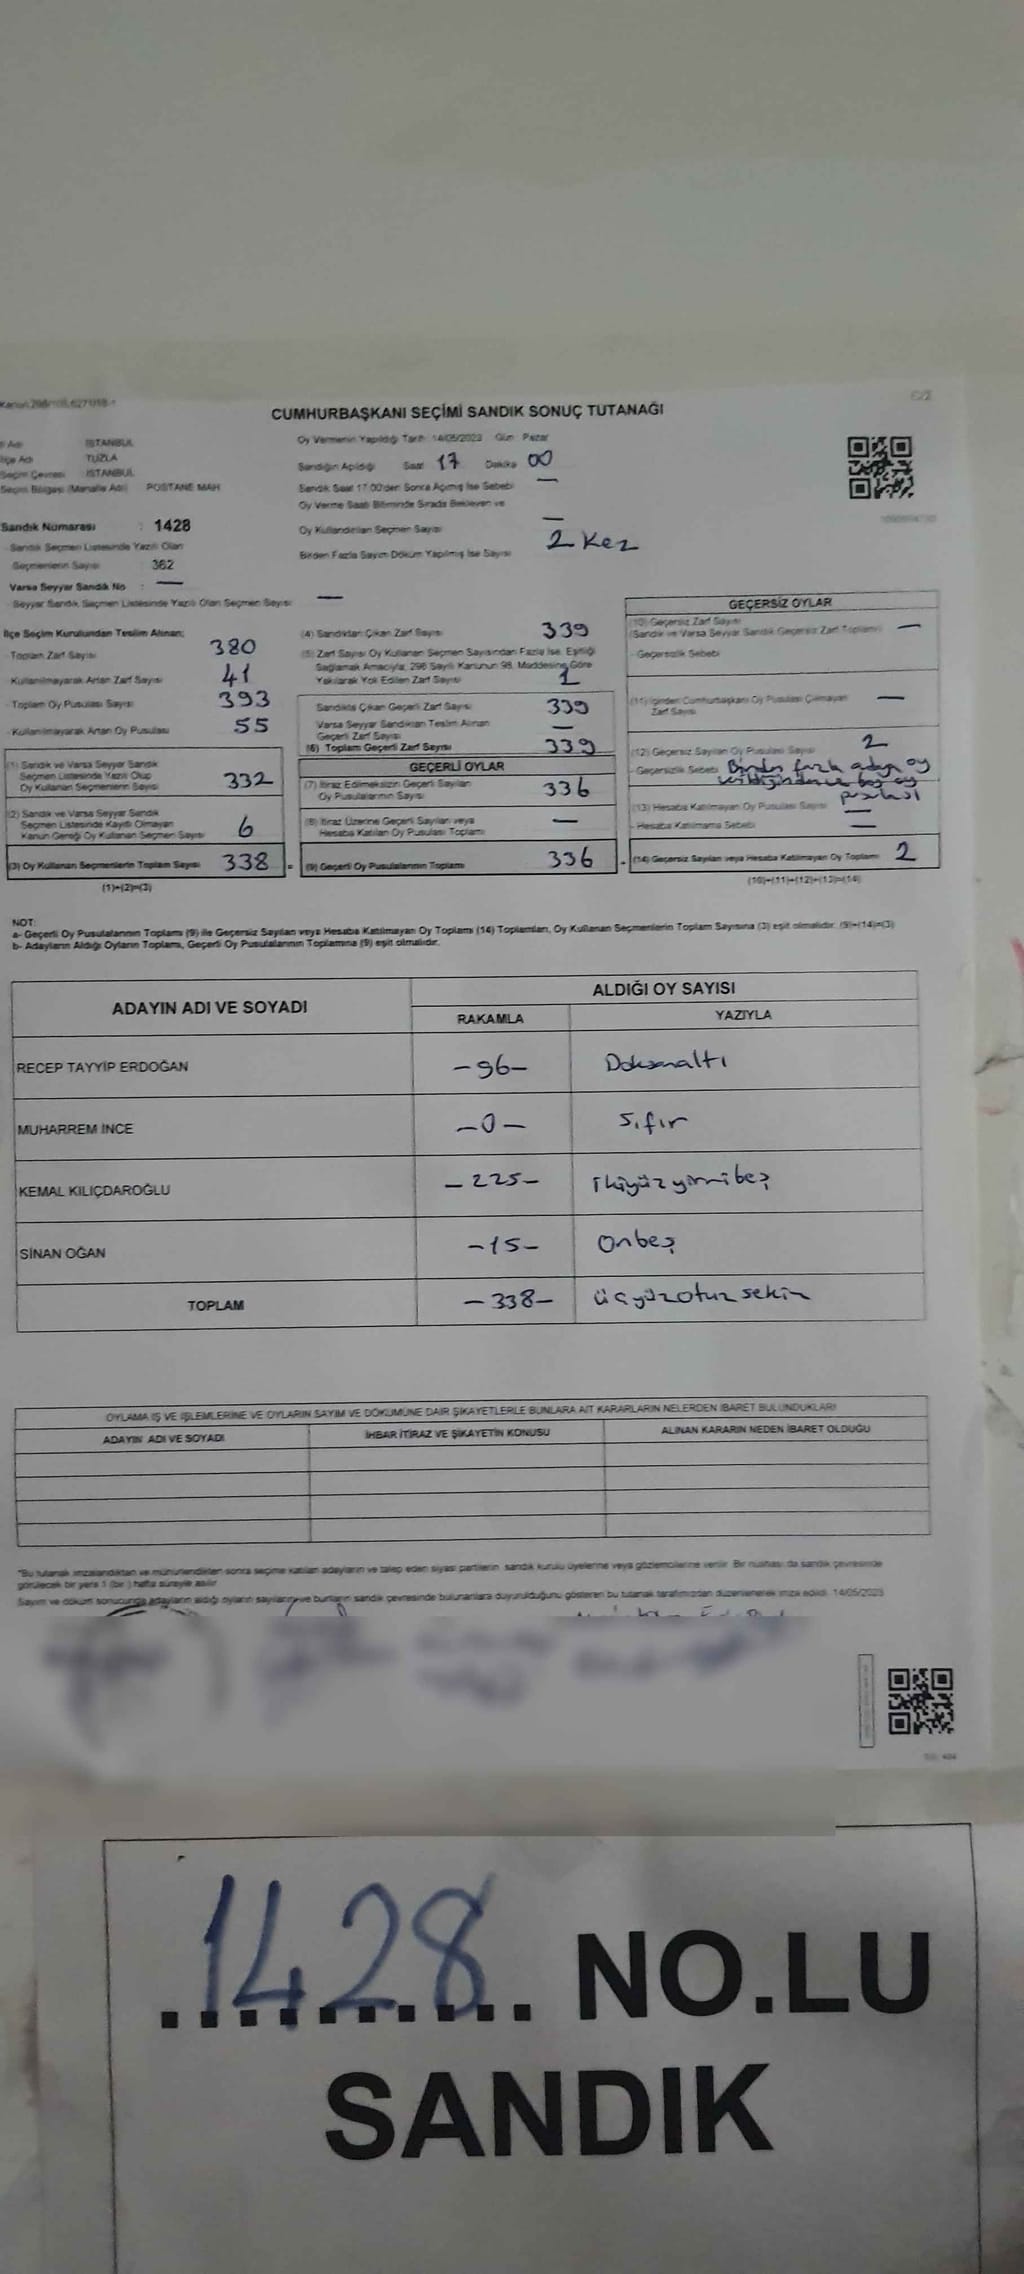 Kanun 298/105,627/018-1
C/2
CUMHURBAŞKANI SEÇİMİ SANDIK SONUÇ TUTANAĞI
İl Adı İSTANBUL
İlçe Adı TUZLA
Seçim Çevresi İSTANBUL
Seçim Bölgesi (Mahalle Adı) POSTANE MAH
Sandık Numarası : 1428
Sandık Seçmen Listesinde Yazılı Olan
Seçmenlerin Sayısı : 362
Varsa Seyyar Sandık No : —
Seyyar Sandık Seçmen Listesinde Yazılı Olan Seçmen Sayısı —
Oy Vermenin Yapıldığı Tarih 14/05/2023 Gün Pazar
Sandığın Açıldığı Saat 17 Dakika 00
Sandık Saat 17.00'den Sonra Açılmış İse Sebebi —
Oy Verme Saati Bitiminde Sırada Bekleyen ve
Oy Kullandırılan Seçmen Sayısı —
Birden Fazla Sayım Döküm Yapılmış İse Sayısı 2 Kez
İlçe Seçim Kurulundan Teslim Alınan;
- Toplam Zarf Sayısı 380
- Kullanılmayarak Artan Zarf Sayısı 41
- Toplam Oy Pusulası Sayısı 393
- Kullanılmayarak Artan Oy Pusulası 55
(1) Sandık ve Varsa Seyyar Sandık
Seçmen Listesinde Yazılı Olup
Oy Kullanan Seçmenlerin Sayısı 332
(2) Sandık ve Varsa Seyyar Sandık
Seçmen Listesinde Kayıtlı Olmayan
Kanun Gereği Oy Kullanan Seçmen Sayısı 6
(3) Oy Kullanan Seçmenlerin Toplam Sayısı 338
(1)+(2)=(3)
(4) Sandıktan Çıkan Zarf Sayısı 339
(5) Zarf Sayısı Oy Kullanan Seçmen Sayısından Fazla İse, Eşitliği
Sağlamak Amacıyla, 298 Sayılı Kanunun 98. Maddesine Göre
Yakılarak Yok Edilen Zarf Sayısı 1
Sandıkta Çıkan Geçerli Zarf Sayısı 339
Varsa Seyyar Sandıktan Teslim Alınan
Geçerli Zarf Sayısı —
(6) Toplam Geçerli Zarf Sayısı 339
GEÇERLİ OYLAR
(7) İtiraz Edilmeksizin Geçerli Sayılan
Oy Pusulalarının Sayısı 336
(8) İtiraz Üzerine Geçerli Sayılan veya
Hesaba Katılan Oy Pusulası Toplamı —
(9) Geçerli Oy Pusulalarının Toplamı 336
GEÇERSİZ OYLAR
(10) Geçersiz Zarf Sayısı
(Sandık ve Varsa Seyyar Sandık Geçersiz Zarf Toplamı) —
- Geçersizlik Sebebi
(11) İçinden Cumhurbaşkanı Oy Pusulası Çıkmayan
Zarf Sayısı —
(12) Geçersiz Sayılan Oy Pusulası Sayısı 2
- Geçersizlik Sebebi Birden fazla adaya oy
verildiğinden ve boş oy
pusulası
(13) Hesaba Katılmayan Oy Pusulası Sayısı —
- Hesaba Katılmama Sebebi —
(14) Geçersiz Sayılan veya Hesaba Katılmayan Oy Toplamı 2
(10)+(11)+(12)+(13)=(14)
NOT:
a- Geçerli Oy Pusulalarının Toplamı (9) ile Geçersiz Sayılan veya Hesaba Katılmayan Oy Toplamı (14) Toplamları, Oy Kullanan Seçmenlerin Toplam Sayısına (3) eşit olmalıdır. (9)+(14)=(3)
b- Adayların Aldığı Oyların Toplamı, Geçerli Oy Pusulalarının Toplamına (9) eşit olmalıdır.
ADAYIN ADI VE SOYADI ALDIĞI OY SAYISI
RAKAMLA YAZIYLA
RECEP TAYYİP ERDOĞAN -96- Doksanaltı
MUHARREM İNCE -0- Sıfır
KEMAL KILIÇDAROĞLU -225- ikiyüzyirmibeş
SİNAN OĞAN -15- Onbeş
TOPLAM -338- üçyüzotuzsekiz
OYLAMA İŞ VE İŞLEMLERİNE VE OYLARIN SAYIM VE DÖKÜMÜNE DAİR ŞİKAYETLERLE BUNLARA AİT KARARLARIN NELERDEN İBARET BULUNDUKLARI
ADAYIN ADI VE SOYADI İHBAR İTİRAZ VE ŞİKAYETİN KONUSU ALINAN KARARIN NEDEN İBARET OLDUĞU
*Bu tutanak imzalandıktan ve mühürlendikten sonra seçime katılan adayların ve talep eden siyasi partilerin sandık kurulu üyelerine veya gözlemcilerine verilir. Bir nüshası da sandık çevresinde
görülecek bir yere 1 (bir) hafta süreyle asılır
Sayım ve döküm sonucunda adayların aldığı oyların sayılarını ve bunların sandık çevresinde bulunanlara duyurulduğunu gösteren bu tutanak tarafımızdan düzenlenerek imza edildi. 14/05/2023
1428 NO.LU
SANDIK